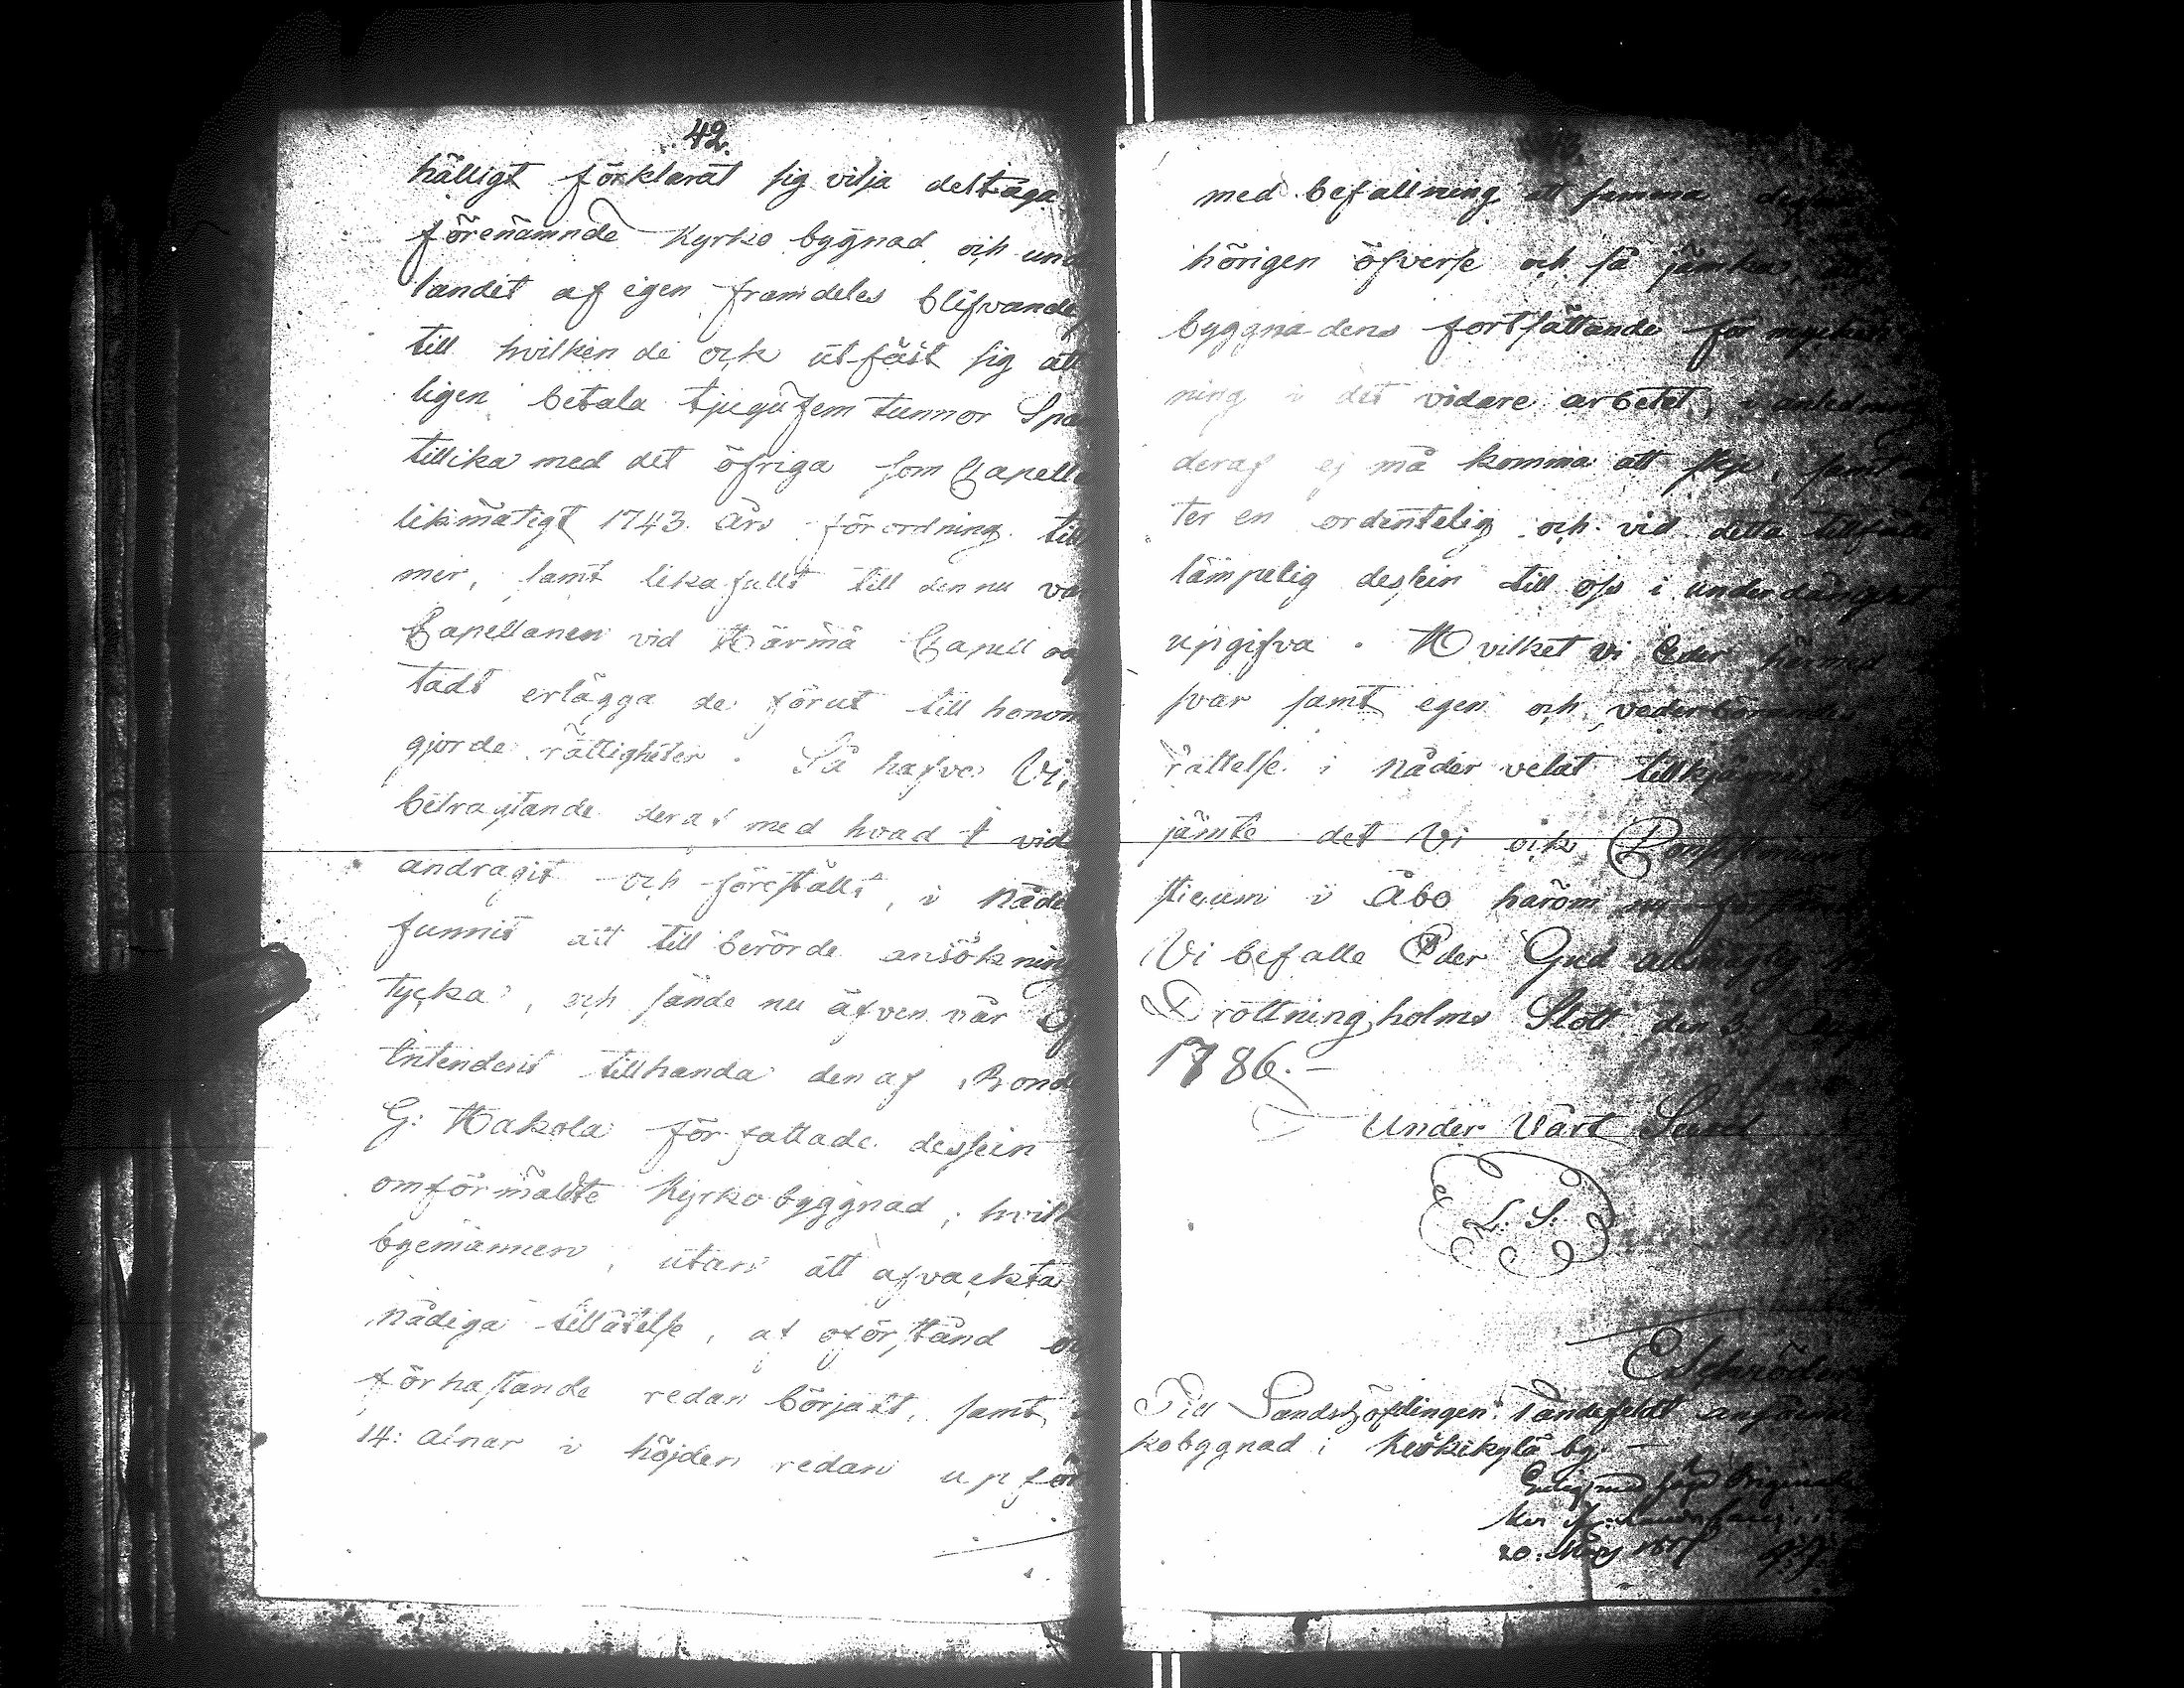 42.
hälligt förklarat sig vilja deltaga
förenämnde Kyrko bygnad och und
landet af egen framdeles blifvande
till hvilken de ock utfäst sig att
ligen betala tjugufem tunnor Spa
tillika med det öfriga som Capell
likmätigt 1743. års förordning till
mer, samt lika fullt till den nu va
Capellanen vid Härmä Capell oaf
tadt erlägga de förut till honom
gjorde rättigheter. Så hafve Vi,
betragtande deraf med hvad I vid
andragit och förestält, i Nåde
funnit att till berörde ansökning
tycka, och sände nu äfven vår Öf
Intendent tillhanda den af Bonde
G: Hakola författade dessein
omförmälte Kyrkobyggnad, hvilk
byemännen, utan att afvackta
nådiga tillåtelse, af oförstånd o
förhastande redan börjatt, samt
14: alnar i höjden redan upför
med befallning att samma
hörigen öfverse och så jämka, at
byggnadens fortsättande för mycken
ning i det vidare arbetet, i anledning
deraf ej må komma att ske, samt
ter en ordentelig och vid detta tillfälle
lämpelig dessein till oss i underdånighet
upgifva. Hvilket Vi Eder härmed
svar samt egen och vederbörandes
rättelse i Nåder velat tillkjänna
jämte det Vi ock Consistorium
sticum i Åbo härom
Vi befalle Eder Gud allsmägtig
Drottningholms Slott den 3.
1786.-
Under Vårt Secret
L. S.
E Schröder
Till Landshöfdingen Tandefeldt angående
kobyggnad i Keskikylä by.-
20. Mars